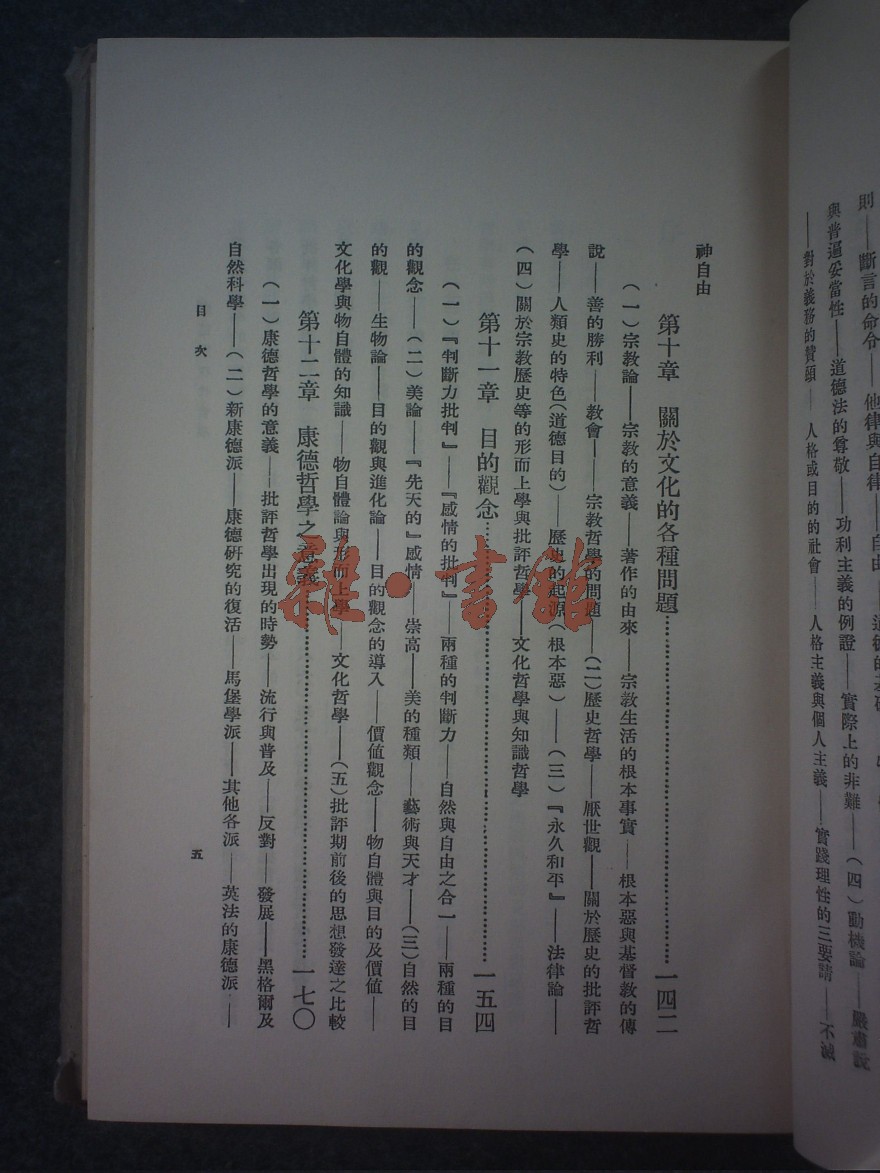 則——斷言的命令——他律與自律——自由——道德的基礎
與普遍妥當性——道德法的尊敬——功利主義的例證——實際上的非難——(四)動機論——嚴肅說
——對於義務的贊頭——人格或目的的社會——人格主義與個人主義——實踐理性的三要請——不滅
神自由
第十章 關於文化的各種問題……一四二
(一)宗教論——宗教的意義——著作的由來——宗教生活的根本事實——根本惡與基督教的傳
說——善的勝利——教會——宗教哲學的問題——(二)歷史哲學——厭世觀——關於歷史的批評哲
學——人類史的特色(道德目的)——歷史的起源(根本惡)——(三)『永久和平』——法律論——
(四)關於宗教歷史等的形而上學與批評哲學——文化哲學與知識哲學
第十一章 目的觀念……一五四
(一)『判斷力批判』——『感情的批判』——兩種的判斷力——自然與自由之合一——兩種的目
的觀念——(二)美論——『先天的』感情——崇高——美的種類——藝術與天才——(三)自然的目
的觀——生物論——目的觀與進化論——目的觀念的導入——價値觀念——物自體與目的及價値——
文化學與物自體的知識——物自體論與形而上學——文化哲學——(五)批評期前後的思想發達之比較
第十二章 康德哲學之意義……一七〇
(一)康德哲學的意義——批評哲學出現的時勢——流行與普及——反對——發展——黑格爾及
自然科學——(二)新康德派——康德硏究的復活——馬堡學派——其他各派——英法的康德派——
目次
五
雜·書館